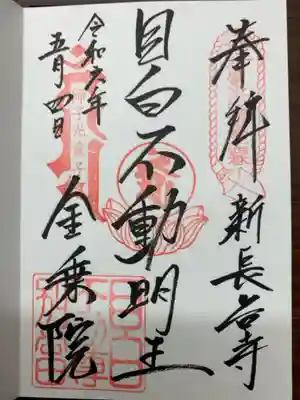 奉拝
新長谷寺
目白不動明王
令和六年
五月四日
金乗院